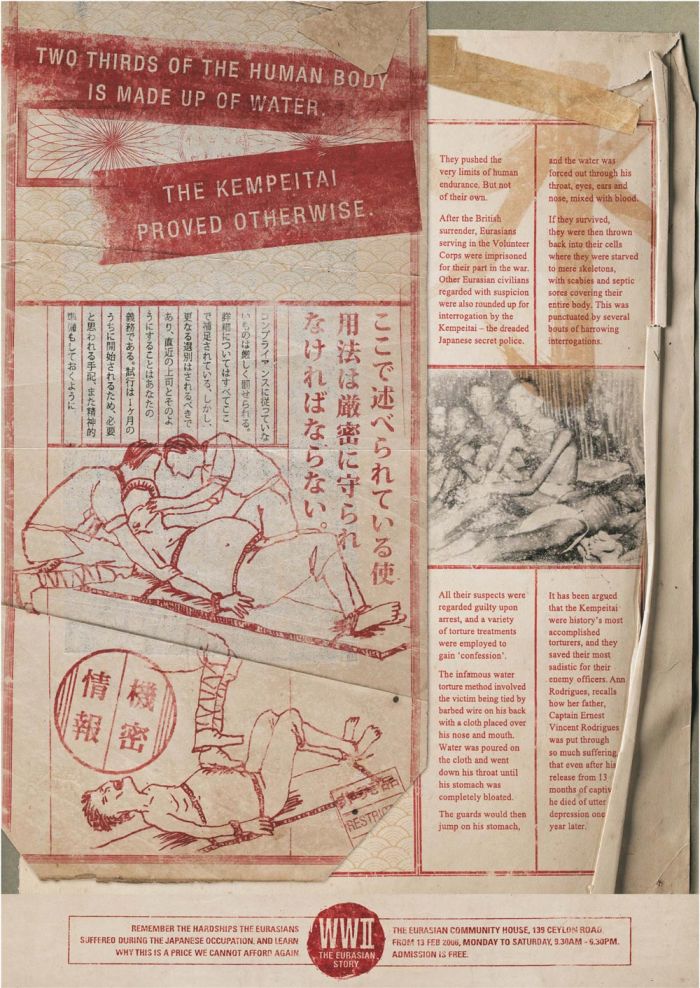 TWO THIRDS OF THE HUMAN BODY
IS MADE UP OF WATER.
THE KEMPEITAI
PROVED OTHERWISE.
ここで述べられている使
用法は厳密に守られ
なければならない。
コンプライアンスに従っていな
いものは厳しく罰せられる。
詳細についてはすべてここ
で補足されている。しかし、
更なる選別はされるべきで
あり、直近の上司とそのよ
うにすることはあなたの
義務である。試行は1ヶ月の
うちに開始されるため、必要
と思われる手配、また精神的
準備もしておくように。
機密
情報
RESTRICT
They pushed the
very limits of human
endurance. But not
of their own.
After the British
surrender, Eurasians
serving in the Volunteer
Corps were imprisoned
for their part in the war.
Other Eurasian civilians
regarded with suspicion
were also rounded up for
interrogation by the
Kempeitai – the dreaded
Japanese secret police.
All their suspects were
regarded guilty upon
arrest, and a variety
of torture treatments
were employed to
gain ‘confession’.
The infamous water
torture method involved
the victim being tied by
barbed wire on his back
with a cloth placed over
his nose and mouth.
Water was poured on
the cloth and went
down his throat until
his stomach was
completely bloated.
The guards would then
jump on his stomach,
and the water was
forced out through his
throat, eyes, ears and
nose, mixed with blood.
If they survived,
they were then thrown
back into their cells
where they were starved
to mere skeletons,
with scabies and septic
sores covering their
entire body. This was
punctuated by several
bouts of harrowing
interrogations.
It has been argued
that the Kempeitai
were history’s most
accomplished
torturers, and they
saved their most
sadistic for their
enemy officers. Ann
Rodrigues, recalls
how her father,
Captain Ernest
Vincent Rodrigues
was put through
so much suffering,
that even after his
release from 13
months of captiv
he died of utter
depression one
year later.
REMEMBER THE HARDSHIPS THE EURASIANS
SUFFERED DURING THE JAPANESE OCCUPATION, AND LEARN
WHY THIS IS A PRICE WE CANNOT AFFORD AGAIN.
WWII
THE EURASIAN
STORY
THE EURASIAN COMMUNITY HOUSE, 139 CEYLON ROAD.
FROM 13 FEB 2006, MONDAY TO SATURDAY, 9.30AM - 6.30PM.
ADMISSION IS FREE.